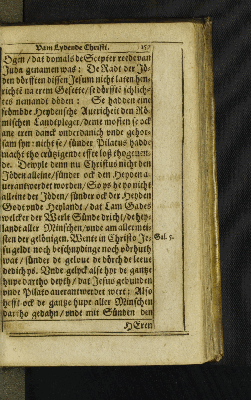 Vam Lydende Christi.
Ogen / dat domals de Scepter rede van
Juda genamen was : De Radt der Jö-
den dörfften dissen Jesum nicht laten hen-
richtē na erem Gesette / se dörfftē schlich-
tes nemandt döden : Se hadden eine
frömbde Heydensche Auericheit den Rö-
mischen Landtpleger / deme mosten se ock
ane eren danck vnderdanich vnde gehor-
sam syn : nicht se / sünder Pilatus hadde
macht tho crützigende effte loß thogeuen-
de. Dewyle denn nu Christus nicht den
Jöden alleine / sünder ock den Heyden a-
uerantwerdet worden / So ys he yo nicht
alleine der Jöden / sünder ock der Heyden
Godt vnde Heylandt / dat Lam Gades
welcker der Werlt Sünde dricht / de hey-
landt aller Minschen / vnde am allermei-
sten der gelöuigen. Wente in Christo Je-
su geldt noch beschnydinge noch vörhuth
wat / sünder de geloue de dörch de leeue
dedich ys. Vnde gelyck alse hyr de gantze
hupe dartho deyth / dat Jesus gebunden
vnde Pilato auerantwerdet wert : Also
hefft ock de gantze hupe aller Minschen
dartho gedahn / vnde mit Sünden den
Gal. 5.
HEren